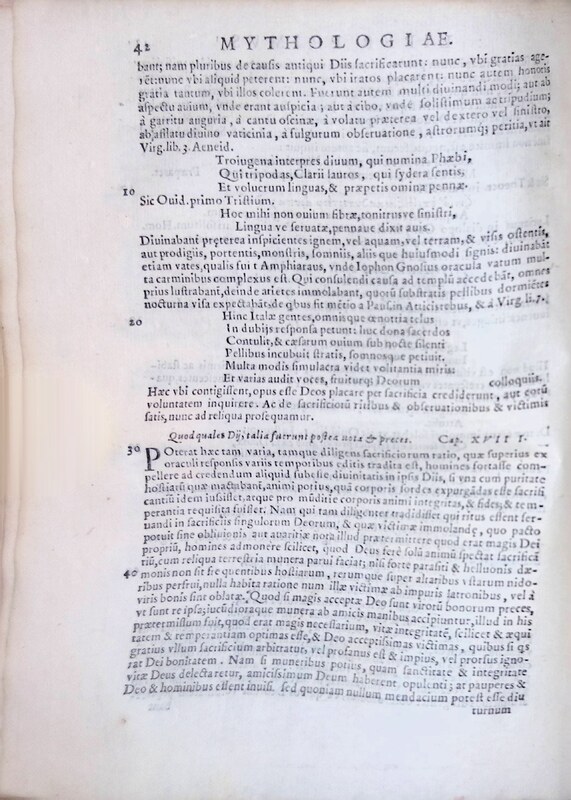 42 MYTHOLOGIAE.
bant; nam pluribus de causis antiqui Diis sacrificarunt: nunc, vbi gratias age-
rēt: nunc vbi aliquid peterent: nunc, vbi iratos placarent: nunc autem honoris
gratia tantum, vbi illos colerent. Fuerunt autem multi diuinandi modi; aut ab
aspectu auium, vnde erant auspicia; aut a cibo, vnde solistimum ac tripudium;
à garritu auguria, à cantu oscinæ, à volatu præterea vel dextero vel sinistro,
ab afflatu diuino vaticinia, à fulgurum obseruatione, astrorumq; peritia, vt ait
Virg. lib. 3. Aeneid.
Troiugena interpres diuum, qui numina Phæbi,
Qui tripodas, Clarii lauros, qui sydera sentis,
10 Et volucrum linguas, & præpetis omina pennæ.
Sic Ouid. primo Tristium.
Hoc mihi non ouium fibræ, tonitrusve sinistri,
Lingua ve seruatæ, pennaue dixit auis.
Diuinabant præterea inspicientes ignem, vel aquam, vel terram, & visis ostentis,
aut prodigiis, portentis, monstris, somniis, aliis que huiusmodi signis: diuinabāt
etiam vates, qualis fuit Amphiaraus, vnde Iophon Gnosius oracula vatum mul-
ta carminibus complexus est. Qui consulendi causa ad templū accedebāt, omnes
prius lustrabant, deinde arietes immolabant, quorū substratis pellibus dormiētes
nocturna visa expectabāt, de qbus fit mētio à Paus. in Atticis rebus, & à Virg. li. 7.
20 Hinc Italæ gentes, omnisque œnotria telus
In dubijs responsa petunt: huc dona sacerdos
Contulit, & cæsarum ouium sub nocte silenti
Pellibus incubuit stratis, somnosque petiuit.
Multa modis simulacra videt volitantia miris:
Et varias audit voces, fruiturq; Deorum colloquiis.
Hæc vbi contigissent, opus esse Deos placare per sacrificia crediderunt, aut eorū
voluntatem inquirere. Ac de sacrificiorū ritibus & obseruationibus & victimis
satis, nunc ad reliqua prosequamur.
Quod quales Dij, talia fuerunt postea vota & preces. Cap. XVIII.
30 Poterat hæc tam varia, tamque diligens sacrificiorum ratio, quæ superius ex
oraculi responsis variis temporibus editis tradita est, homines fortasse com-
pellere ad credendum aliquid subesse diuinitatis in ipsis Diis, si vna cum puritate
hostiarū quæ mactabant, animi potius, quā corporis sordes expurgādas esse sacrifi
cantiū idem iussisset, atque pro mūditie corporis animi integritas, & fides, & tem-
perantia requisita fuisset. Nam qui tam diligenter tradidisset qui ritus essent ser-
uandi in sacrificiis singulorum Deorum, & quæ victimæ immolandę, quo pacto
potuit sine obliuionis aut auaritiæ nota illud prætermittere quod erat magis Dei
propriū, homines admonere scilicet, quod Deus ferè solū animū spectat sacrificā
tiū, cum reliqua terrestria munera parui faciat; nisi forte parasiti & helluonis dæ-
40 monis non sit frequentibus hostiarum, rerumque super altaribus vstarum nido-
ribus perfrui, nulla habita ratione num illæ victimæ ab impuris latronibus, vel à
viris bonis sint oblatæ. Quod si magis acceptæ Deo sunt virorū bonorum preces,
vt sunt re ipsa; iucudioraque munera ab amicis manibus accipiuntur, illud in his
prætermissum fuit, quod erat magis necessarium, vitæ integritatē, scilicet & æqui
tatem & temperantiam optimas esse, & Deo acceptissimas victimas, quibus si qs
gratius vllum sacrificium arbitratur, vel profanus est & impius, vel prorsus igno-
rat Dei bonitatem. Nam si muneribus potius, quàm sanctitate & integritate
vitæ Deus delectaretur, amicissimum Deum haberent opulenti; at pauperes &
Deo & hominibus essent inuisi. sed quoniam nullum mendacium potest esse diu
turnum